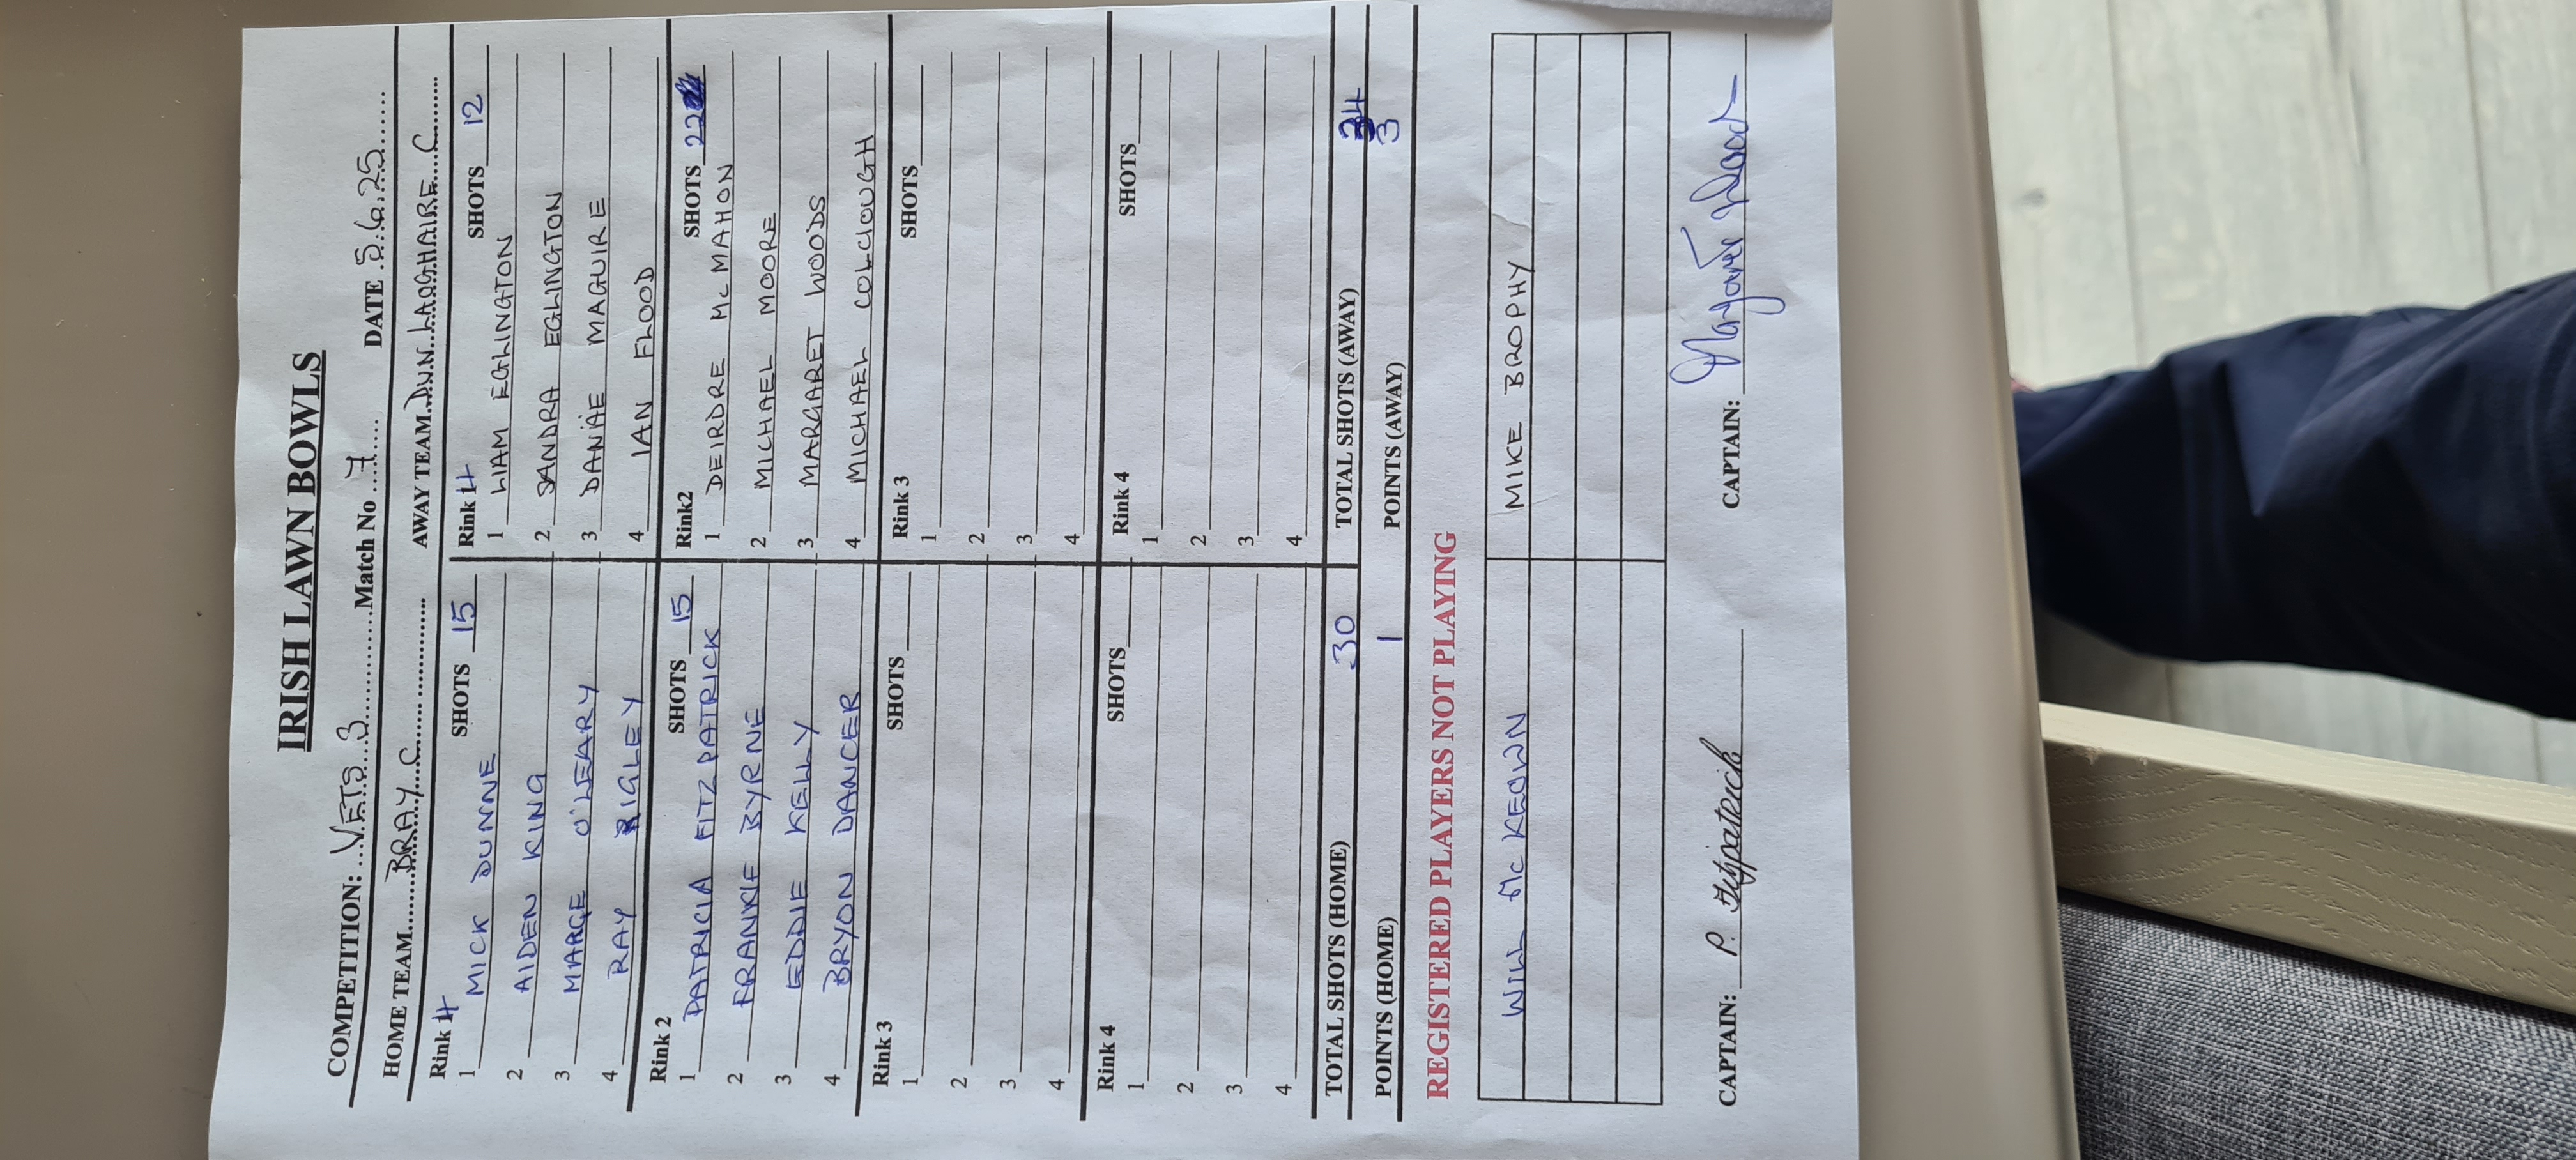 IRISH LAWN BOWLS
COMPETITION: VETS 3 Match No 7 DATE 5.6.25
HOME TEAM BRAY C AWAY TEAM DUN LAOGHAIRE C
Rink 4 SHOTS 15
1 MICK DUNNE
2 AIDEN KING
3 MARGE O'LEARY
4 RAY RIGLEY
Rink 4 SHOTS 12
1 LIAM EGLINGTON
2 SANDRA EGLINGTON
3 DANAE MAGUIRE
4 IAN FLOOD
Rink 2 SHOTS 15
1 PATRICIA FITZPATRICK
2 FRANKIE BYRNE
3 EDDIE KELLY
4 BRYON DANCER
Rink2 SHOTS 22
1 DEIRDRE McMAHON
2 MICHAEL MOORE
3 MARGARET WOODS
4 MICHAEL COLCLOUGH
Rink 3 SHOTS
1
2
3
4
Rink 3 SHOTS
1
2
3
4
Rink 4 SHOTS
1
2
3
4
Rink 4 SHOTS
1
2
3
4
TOTAL SHOTS (HOME) 30 TOTAL SHOTS (AWAY) 34
POINTS (HOME) 1 POINTS (AWAY) 3
REGISTERED PLAYERS NOT PLAYING
WILL McKEOWN MIKE BROPHY
CAPTAIN: P. Fitzpatrick CAPTAIN: Margaret